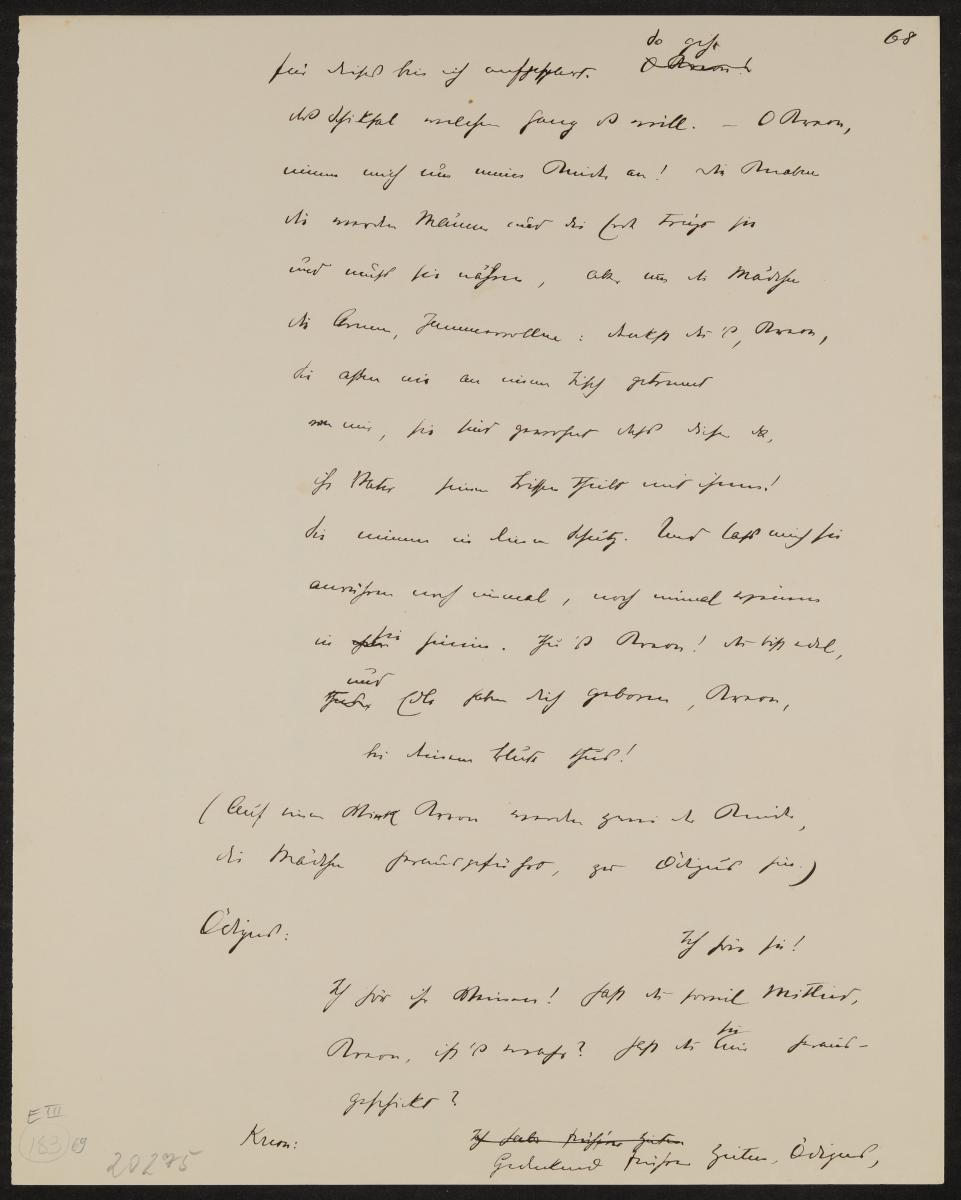 68
für dieses bin ich aufgespart. So geh
das Schiksal welchen Gang es will. – O Kreon,
nimm mich um meine Kinder an! die Knaben
die werden Männer und die Erde trägt sie
und muß sie nähren, aber um die Mädchen
die Armen, Jammervollen: denkst du's, Kreon,
sie aßen nie an einem Tisch getrennt
von mir, sie sind gewohnt daß dieser da,
ihr Vater seinen Bissen theilt mit ihnen!
Die nimm in deinen Schutz. Und laß mich sie
anrühren noch einmal, noch einmal weinen
in sie hinein. Thu's Kreon! du bist edel,
und Edle haben dich geboren, Kreon,
bei deinem Blute thu's!
(Auf einen Wink Kreons werden zwei der Kinder,
die Mädchen herausgeführt, zu Ödipus hin.)
Ödipus:
Ich hör sie!
Ich hör ihr Weinen! hast du soviel Mitleid,
Kreon, ist's wahr? hast du sie mir heraus-
geschickt?
Kreon:
Ich habe früherer Zeiten
Gedenkend früherer Zeiten, Ödipus,
E III
183
69
20275